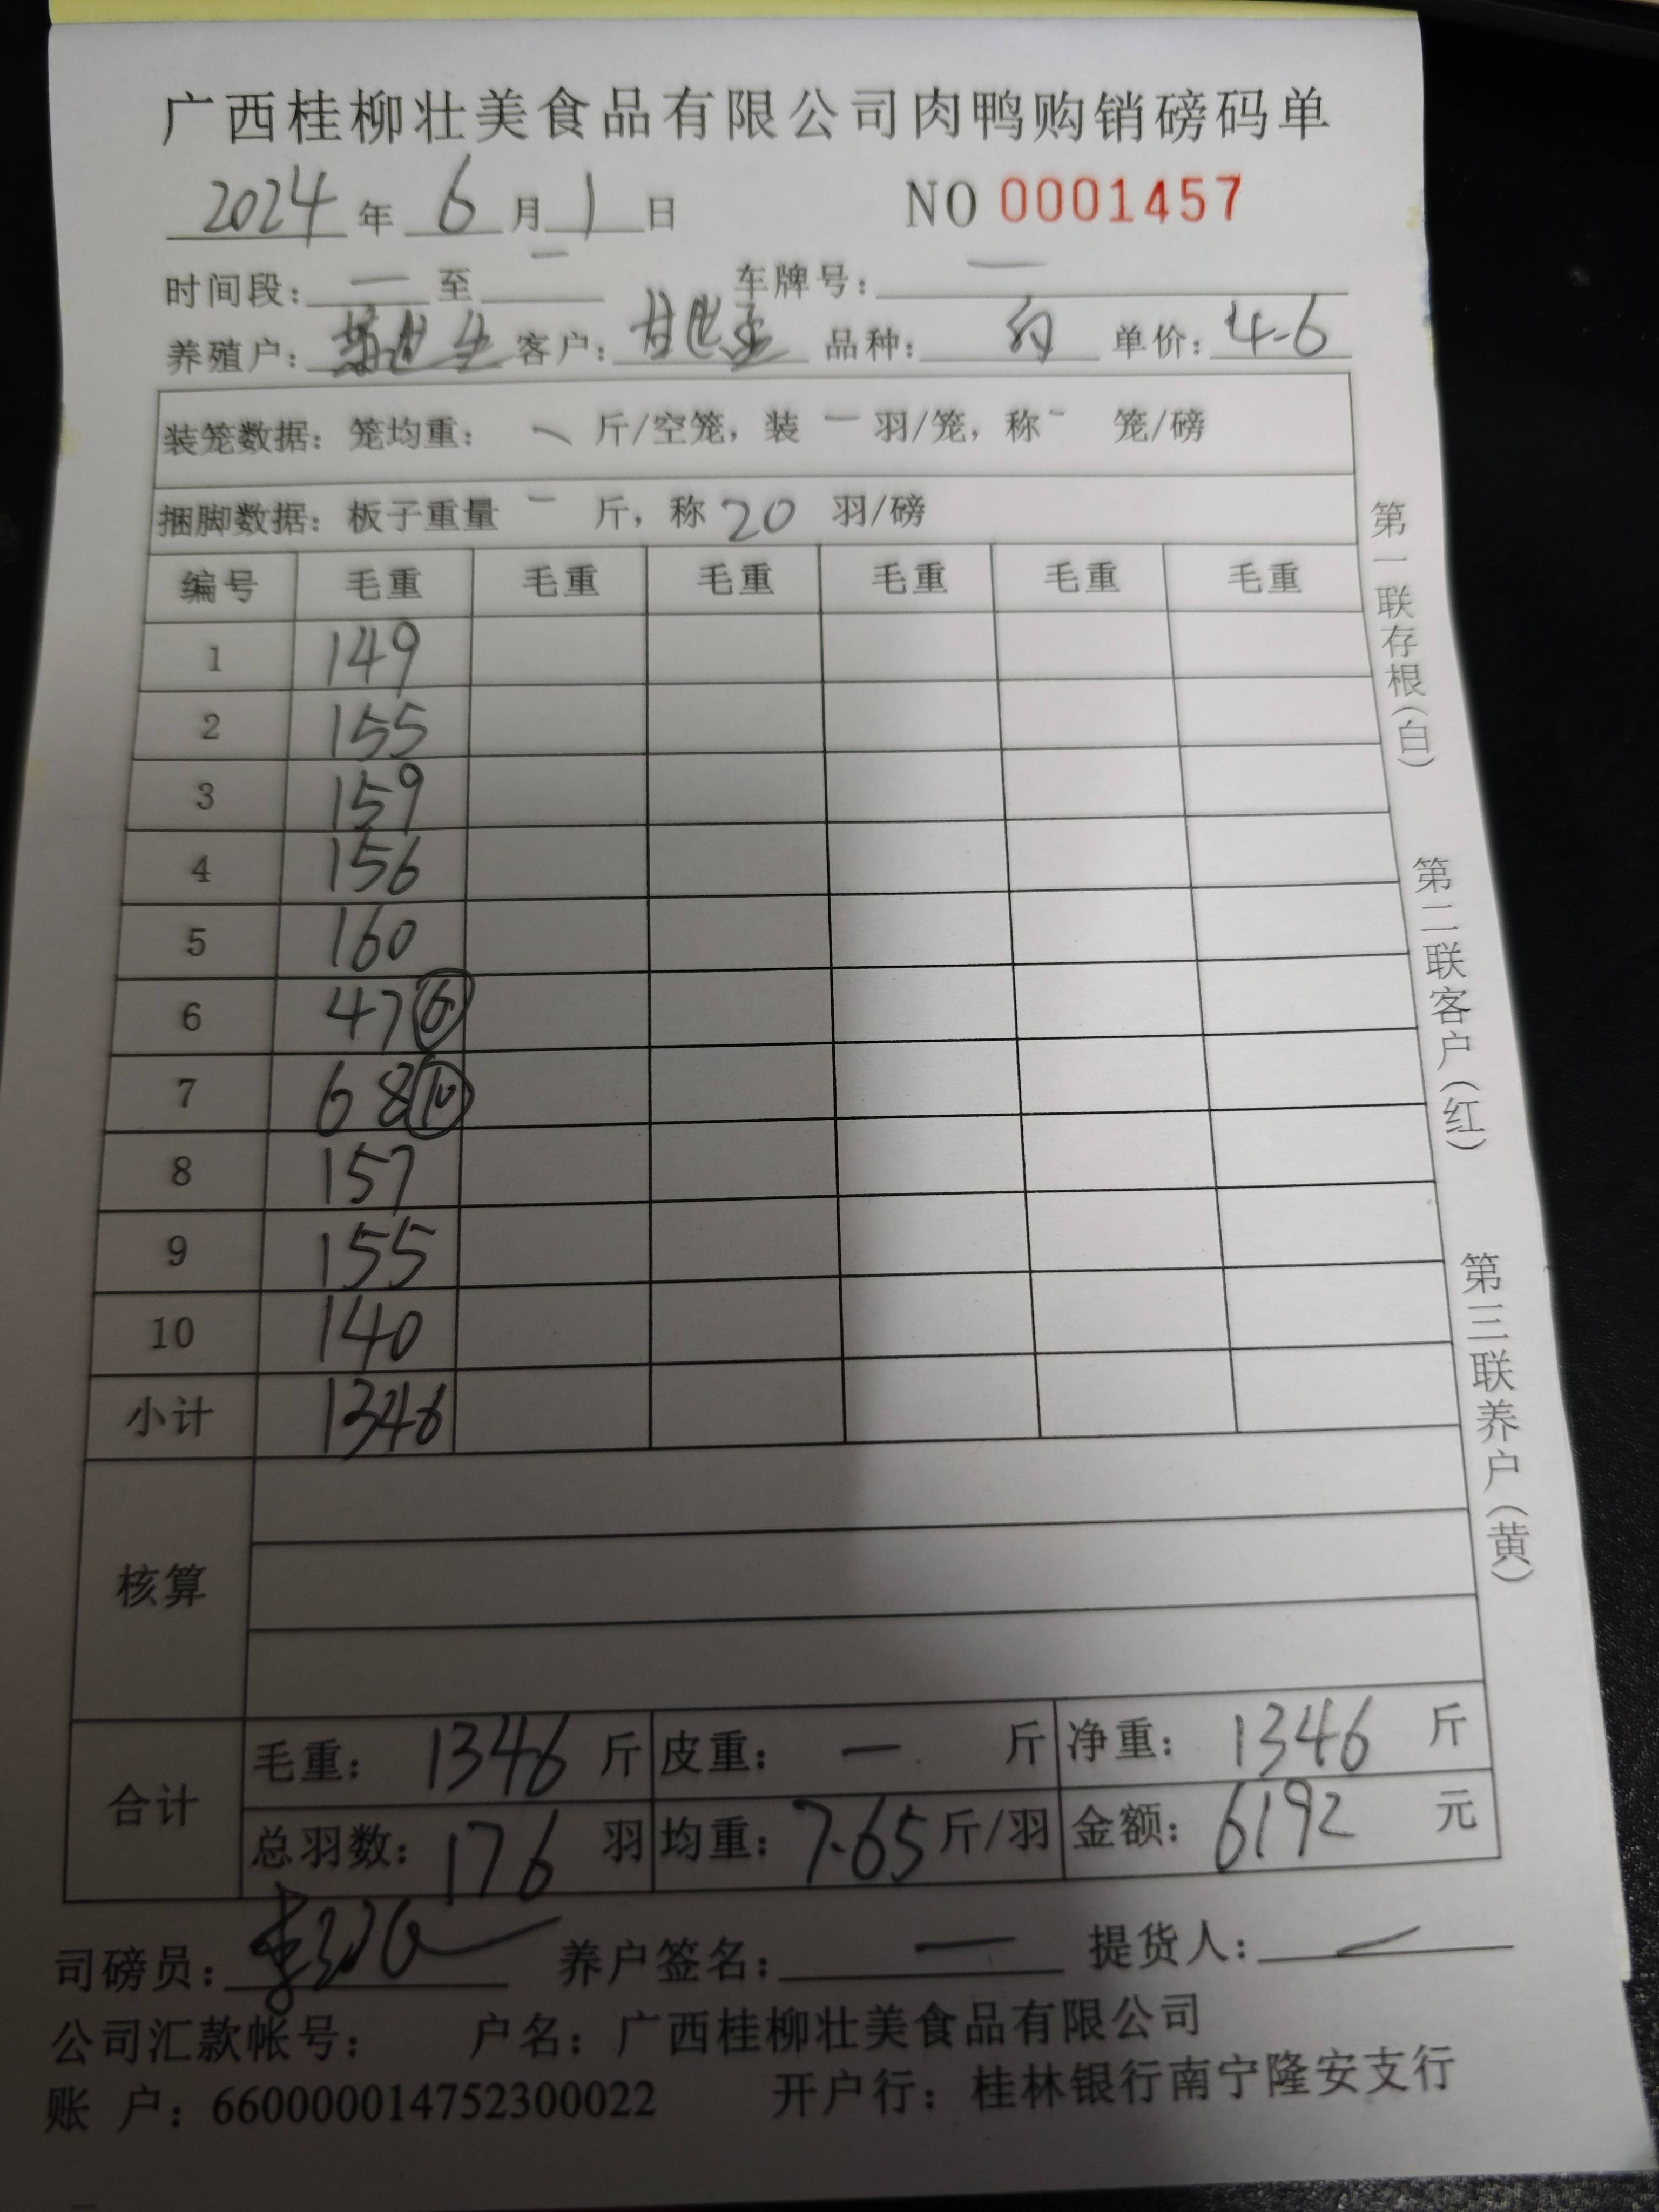 广西桂柳壮美食品有限公司肉鸭购销磅码单
2024年6月1日 NO 0001457
时间段：一至一 车牌号：一
养殖户： 客户：甘世 品种： 单价：4.6
装笼数据：笼均重：一斤/空笼，装一羽/笼，称一笼/磅
捆脚数据：板子重量一斤，称20羽/磅
编号 毛重 毛重 毛重 毛重 毛重 毛重
1 149
2 155
3 159
4 156
5 160
6 47⑥
7 68⑩
8 157
9 155
10 140
小计 1346
核算
合计 毛重：1346斤 皮重：一斤 净重：1346斤
总羽数：176羽 均重：7.65斤/羽 金额：6192元
司磅员： 养户签名：一 提货人：一
公司汇款帐号： 户名：广西桂柳壮美食品有限公司
账 户：660000014752300022 开户行：桂林银行南宁隆安支行
第一联存根（白） 第二联客户（红） 第三联养户（黄）